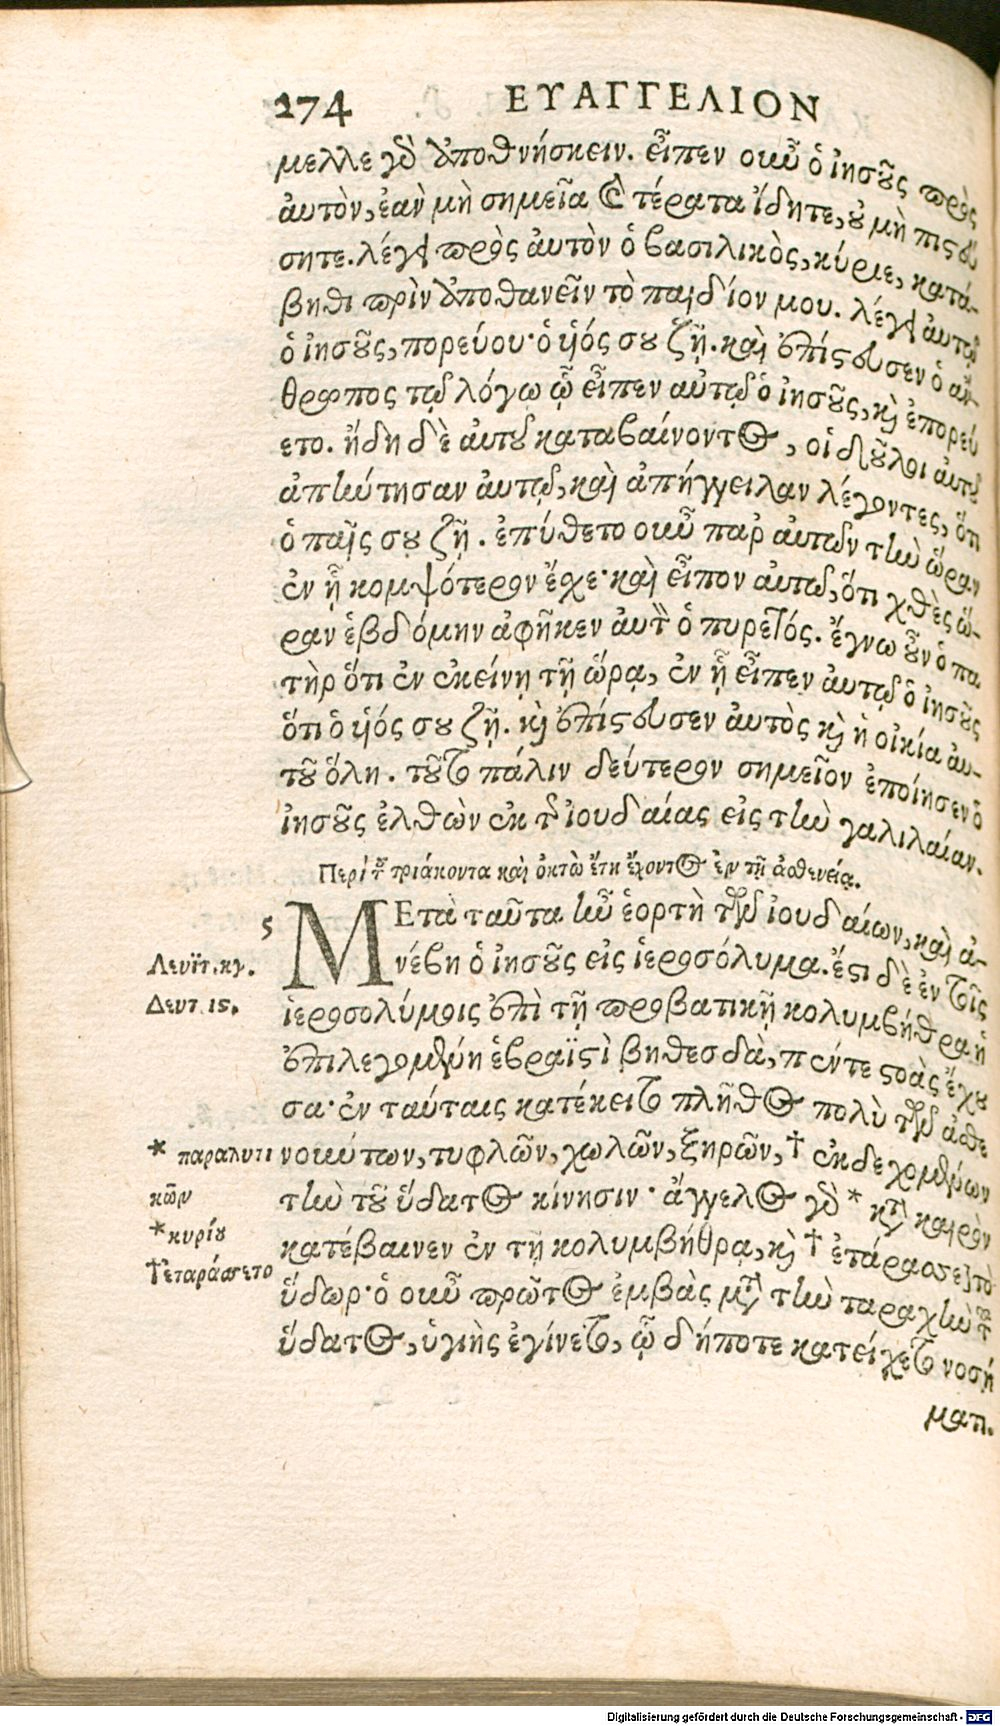 274 ΕΥΑΓΓΕΛΙΟΝ
μελλε γὸ ἀποθνήσκειν. εἶπεν οιωῦ ὁ ἰησοῦς πρὸς
ἀυτὸν, ἐαν μὴ σημεῖα καὶ τέρατα ἴδητε, οὐ μὴ πιστεύ
σητε. λέγει πρὸς ἀυτὸν ὁ βασιλικὸς, κύριε, κατά-
βηθι πρὶν ἀποθανεῖν τὸ παιδίον μου. λέγει ἀυτῷ
ὁ ἰησοῦς, πορεύου· ὁ ὑιός σου ζῇ. καὶ ἐπίστευσεν ὁ ἄν-
θρωπος τῷ λόγω ᾧ εἶπεν αὐτῷ ὁ ἰησοῦς, καὶ ἐπορεύ
ετο. ἤδη δὲ ἀυτοῦ καταβαίνοντος, οἱ δοῦλοι ἀυτοῦ
ἀπήντησαν ἀυτῷ, καὶ ἀπήγγειλαν λέγοντες, ὅτι
ὁ παῖς σου ζῇ. ἐπύθετο οὖν παρ ἀυτων τὴν ὥραν
ἐν ᾗ κομψότερον ἔχε· καὶ εἶπον ἀυτω, ὅτι χθὲς ὥ-
ραν ἑβδόμην ἀφῆκεν ἀυτὸν ὁ πυρετός. ἔγνω οὖν ὁ πα
τὴρ ὅτι ἐν ἐκείνῃ τῇ ὥρᾳ, ἐν ᾗ εἶπεν ἀυτῷ ὁ ἰησοῦς
ὅτι ὁ ὑιός σου ζῇ. καὶ ἐπίστευσεν ἀυτὸς καὶ ἡ οἰκία ἀυ-
τοῦ ὅλη. τοῦτο πάλιν δεύτερον σημεῖον ἐποίησεν ὁ
ἰησοῦς ἐλθὼν ἐκ τῆς ἰουδαίας εἰς τὴν γαλιλαίαν.
Περὶ τοῦ τριάκοντα καὶ ὀκτὼ ἔτη ἔχοντος ἐν τῇ ἀσθενείᾳ.
5 ΜΕτὰ ταῦτα ἦν ἑορτὴ τῶν ἰουδαίων, καὶ ἀ-
Λευϊτ. κγ. νέβη ὁ ἰησοῦς εἰς ἱεροσόλυμα. ἔστι δὲ ἐν τοῖς
Δευτ 15. ἱεροσολύμοις ἐπὶ τῇ προβατικῇ κολυμβήθρα ἡ
ἐπιλεγομένη ἑβραϊστὶ βηθεσδὰ, πέντε στοὰς ἔχου
σα· ἐν ταύταις κατέκειτο πλῆθος πολὺ τῶν ἀσθε
* παραλυτι νούντων, τυφλῶν, χωλῶν, ξηρῶν, † ἐκδεχομένων
κῶν τὴν τοῦ ὕδατος κίνησιν· ἄγγελος γὸ * κατὰ καιρὸν
* κυρίου κατέβαινεν ἐν τῇ κολυμβήθρᾳ, καὶ † ἐτάρασσε] τὸ
† ἐταράσσετο ὕδωρ· ὁ οὖν πρῶτος ἐμβὰς μετὰ τὴν ταραχὴν τοῦ
ὕδατος, ὑγιὴς ἐγίνετο, ᾧ δήποτε κατείχετο νοσή
ματι.
Digitalisierung gefördert durch die Deutsche Forschungsgemeinschaft - DFG